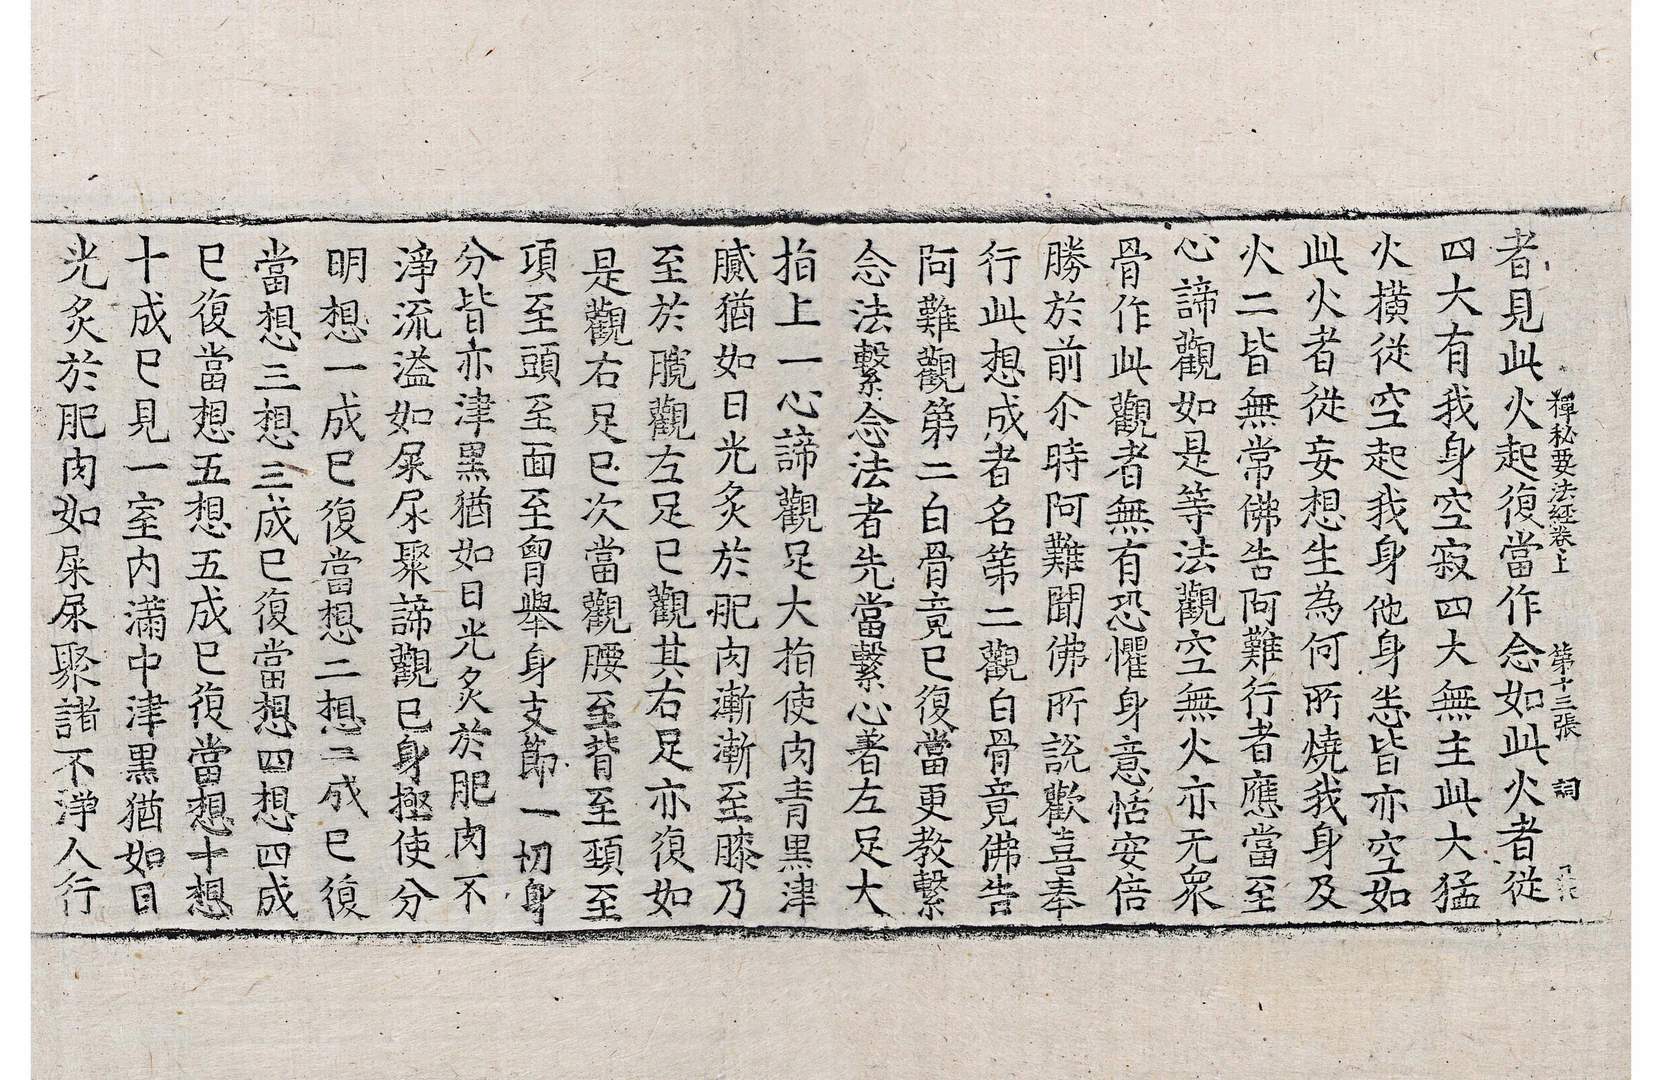 禪秘要法經卷上　第十三張　詞
者見此火起復當作念如此火者從
四大有我身空寂四大無主此大猛
火横從空起我身他身悉皆亦空如
此火者從妄想生為何所燒我身及
火二皆無常佛告阿難行者應當至
心諦觀如是等法觀空無火亦无衆
骨作此觀者無有恐懼身意恬安倍
勝於前尒時阿難聞佛所說歡喜奉
行此想成者名第二觀白骨竟佛告
阿難觀第二白骨竟已復當更教繫
念法繫念法者先當繫心著左足大
指上一心諦觀足大指使肉青黑津
膩猶如日光炙於肥肉漸漸至膝乃
至於臗觀左足已觀其右足亦復如
是觀右足已次當觀腰至背至頸至
項至頭至面至胷舉身支節一切身
分皆亦津黑猶如日光炙於肥肉不
淨流溢如屎尿聚諦觀已身極使分
明想一成已復當想二想二成已復
當想三想三成已復當想四想四成
已復當想五想五成已復當想十想
十成已見一室內滿中津黒猶如日
光炙於肥肉如屎尿聚諸不淨人行